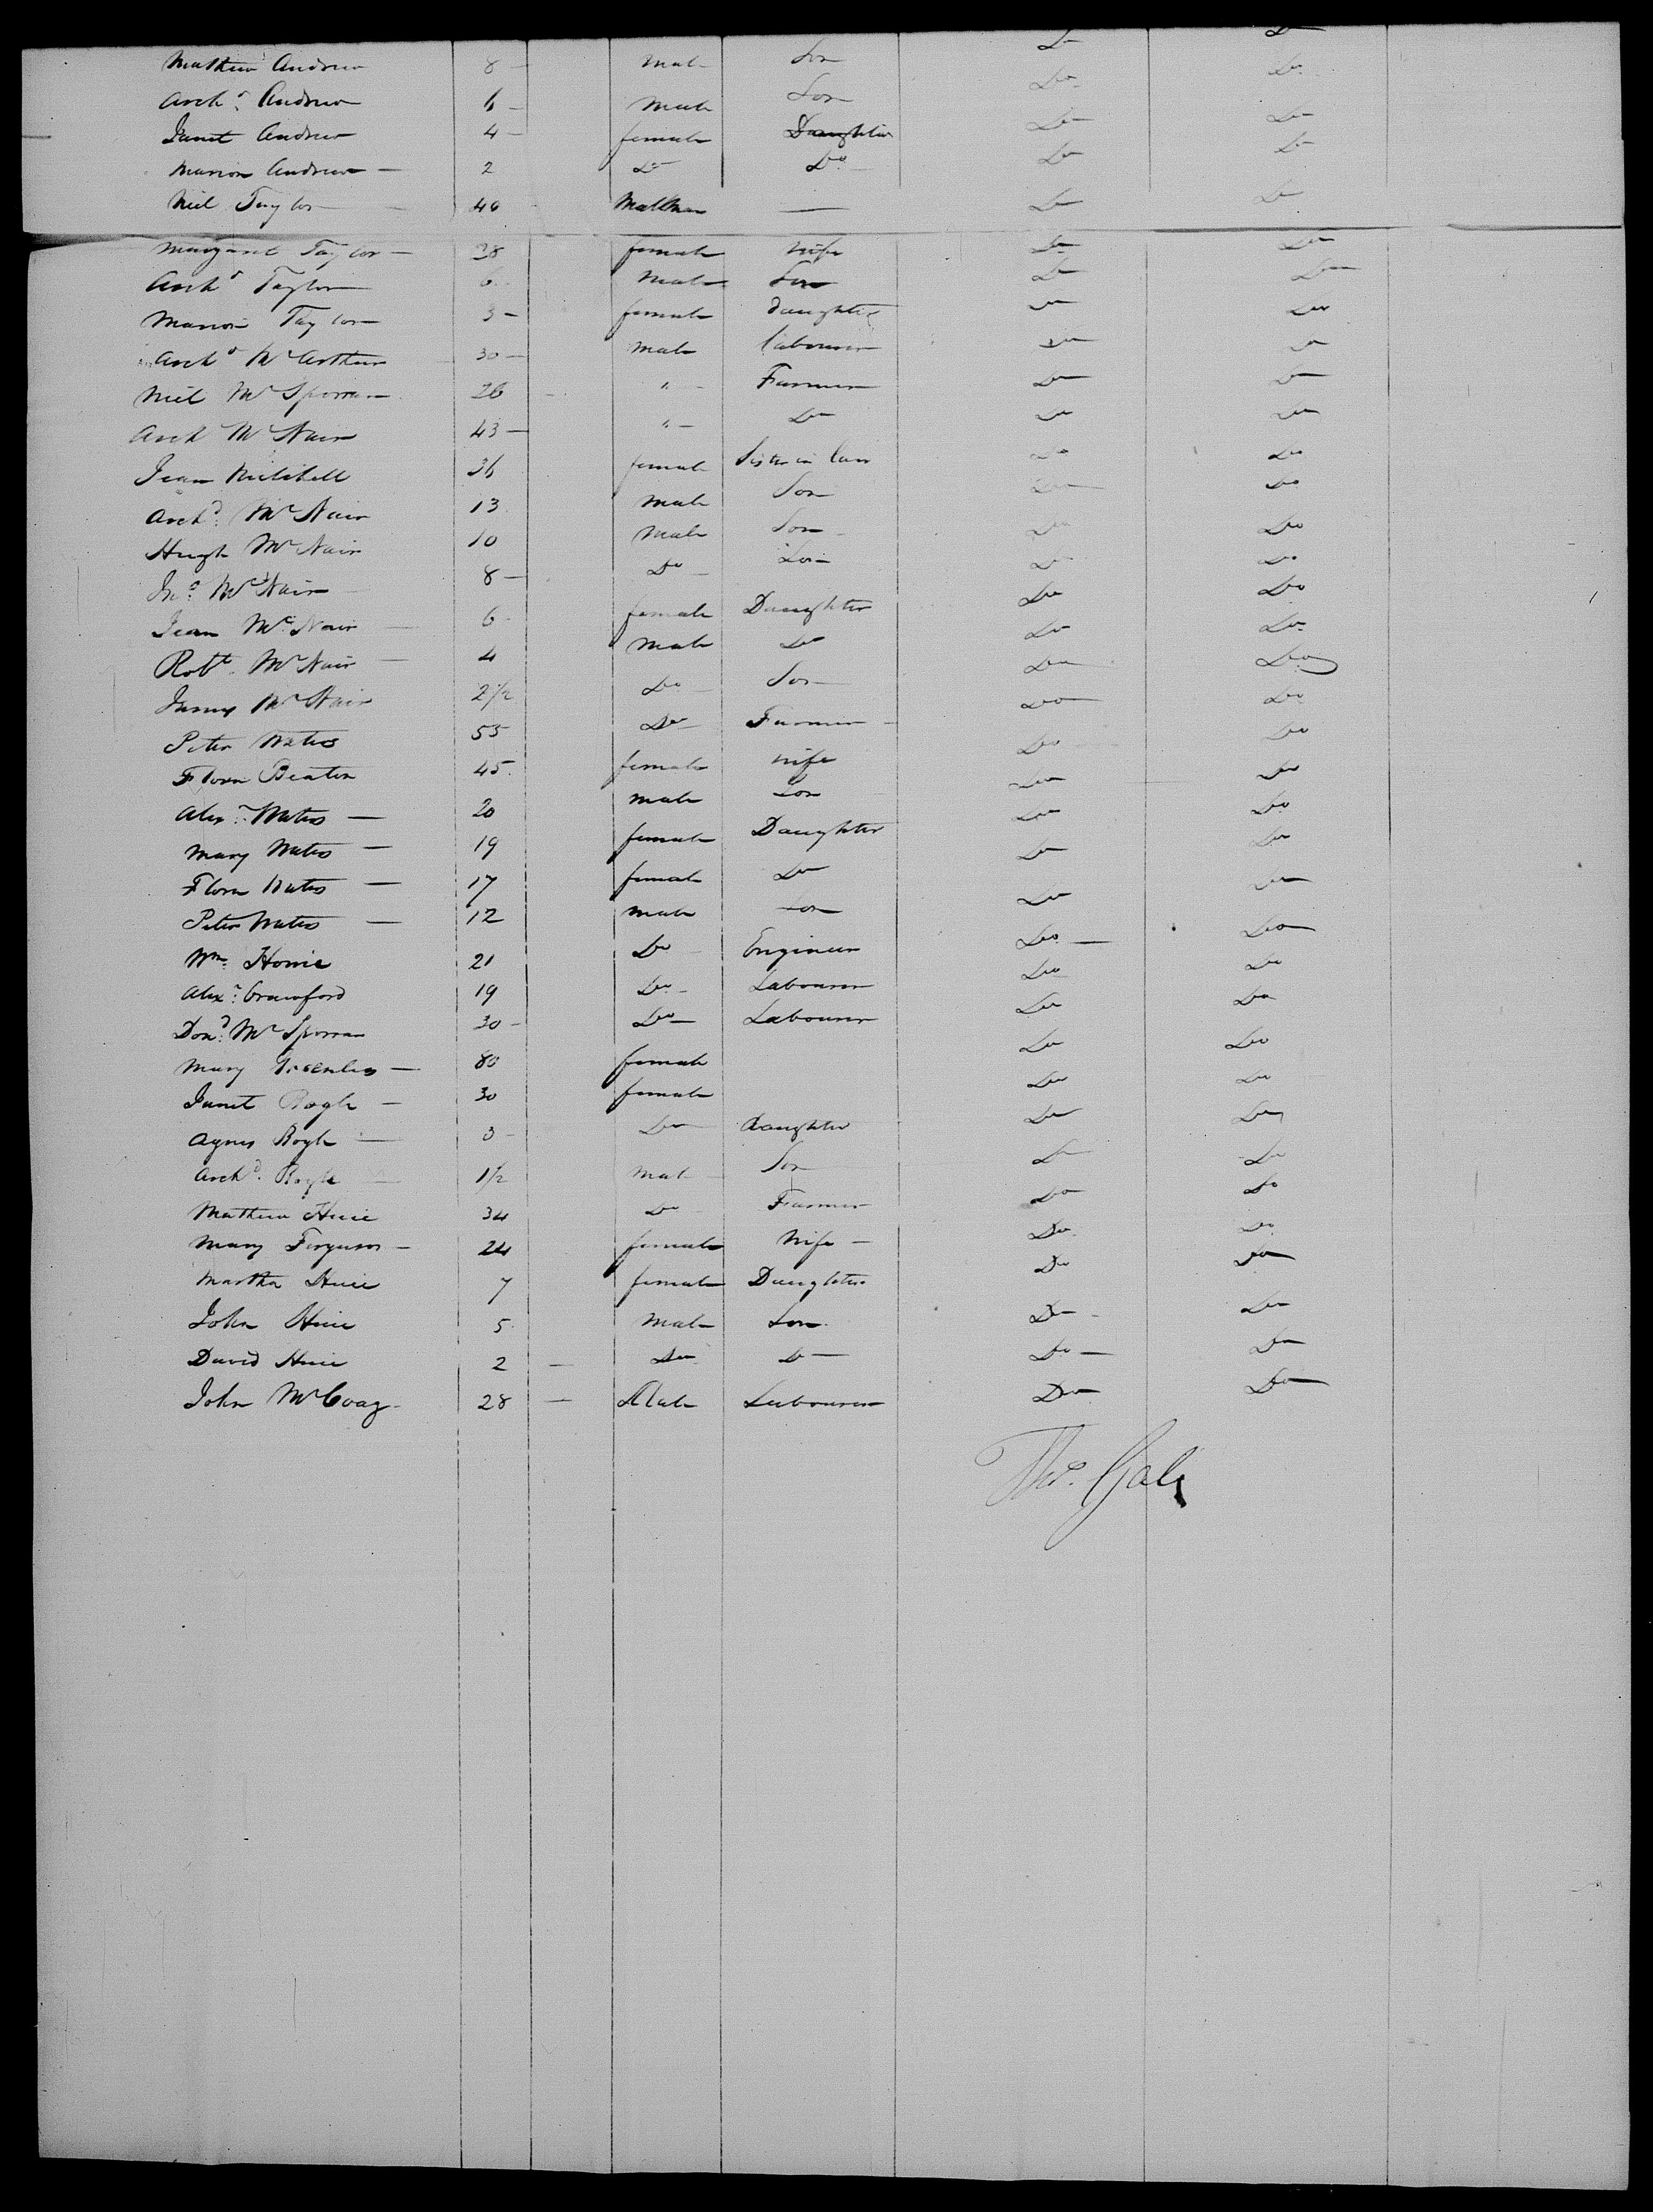 Mathew Andrew 8 – Male Son Do Do
Archd Andrew 6 – Male Son Do Do
Janet Andrew 4 – female Daughter Do Do
Marion Andrew – 2 Do Do Do Do
Niel Taylor – 40 Maltman — Do Do
Margaret Taylor – 28 female wife Do Do
Archd Taylor 6 Male Son Do Do
Marion Taylor 3 – female daughter Do Do
Archd McArthur 30 – Male labourer Do Do
Niel McSporran 26 " – Farmer Do Do
Arch McNair 43 – " – Do Do Do
Jean Mitchell 36 female Sister in law Do Do
Archd McNair 13 Male Son Do Do
Hugh McNair 10 Male Son Do Do
Jno McNair 8 – Do Son Do Do
Jean McNair – 6 female Daughter Do Do
Robt McNair – 4 Male Do Do Do
McNair 2 1/2 Do Son Do Do
Peter Watts 55 Do Farmer Do Do
Flora Beaton 45 female wife Do Do
Alexr Watts – 20 male Son Do Do
Mary Watts – 19 female Daughter Do Do
Flora Watts – 17 female Do Do Do
Peter Watts – 12 male Son Do Do
Wm Howie 21 Do Engineer Do – Do
Alexr Crawford 19 Do Labourer Do Do
Dond McSporran 30 – Do Labourer Do Do
Mary Greenlees – 80 female Do Do
Janet Bogle – 30 female Do Do
Agnes Bogle – 3 – Do daughter Do Do
Archd Bogle 1 1/2 male Son Do Do
Mathew Huie 34 Do Farmer Do Do
Mary Ferguson – 24 female Wife – Do Do
Martha Huie 7 female Daughter Do Do
John Huie 5 Male Son Do Do
David Huie 2 – Do Do Do – Do
John McCoag 28 – Male Labourer Do Do
Thos. Gale